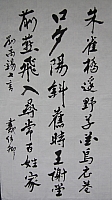 朱雀橋邊野草花烏衣巷
口夕陽斜舊時王謝堂
前燕飛入尋常百姓家
劉禹錫